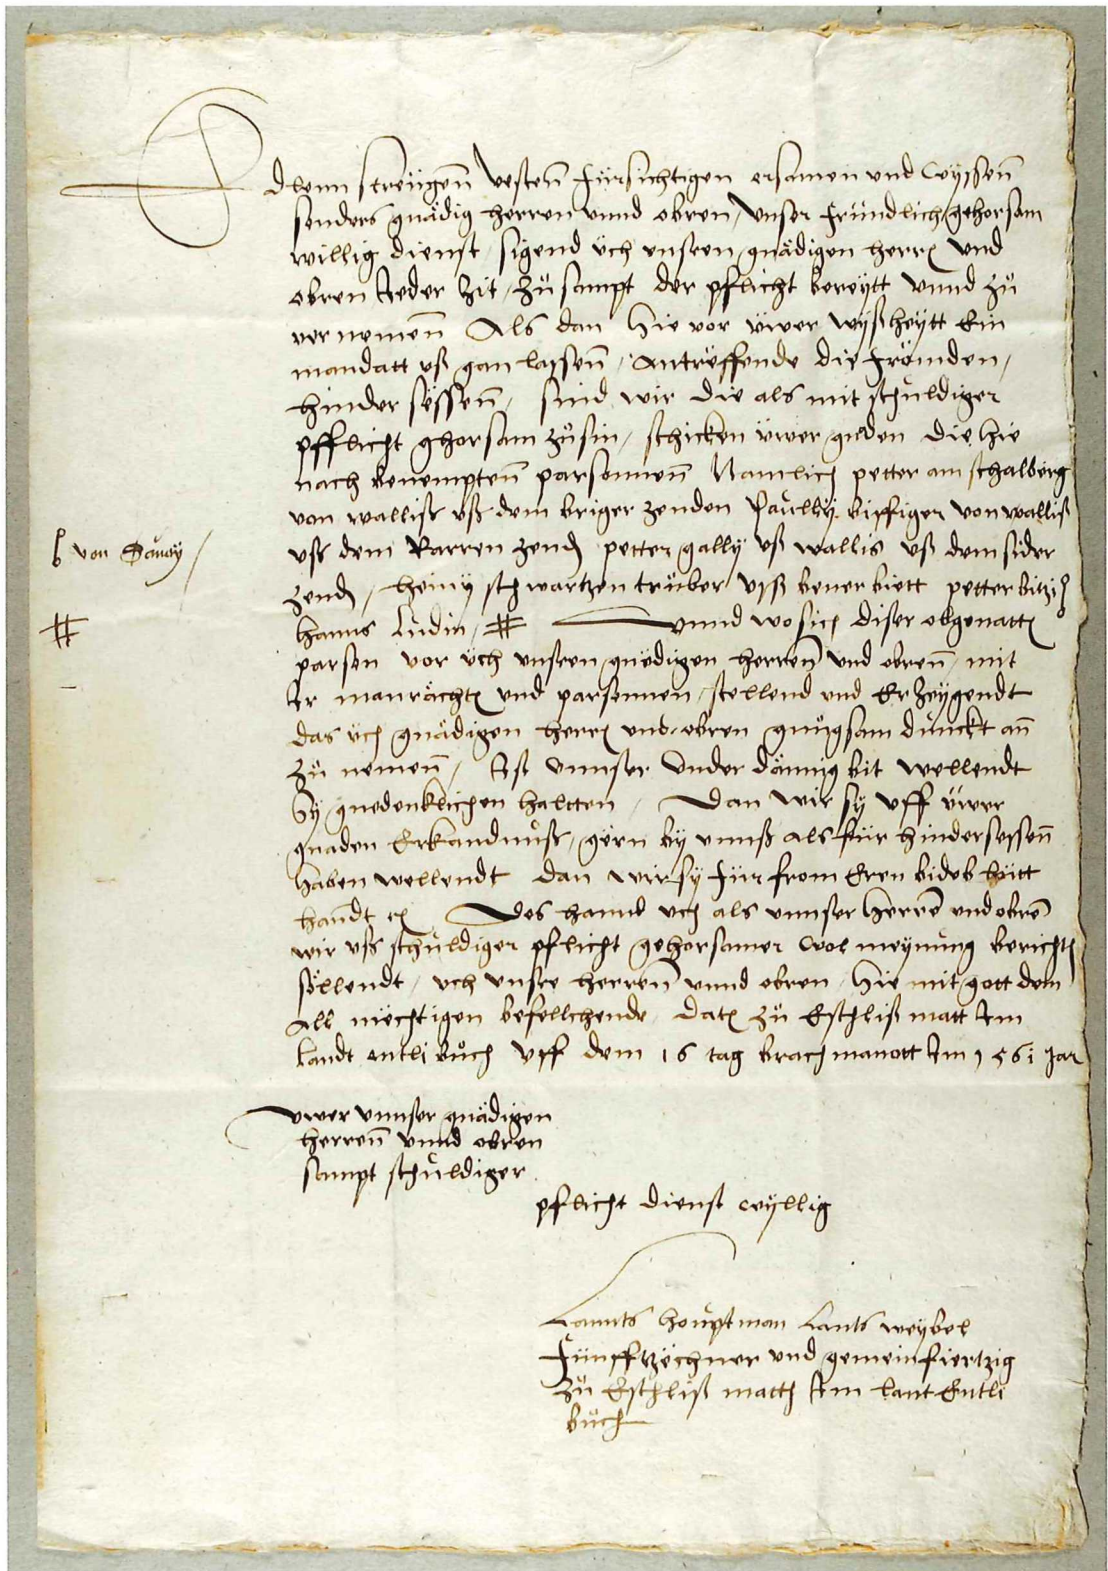 Edlenn strenngenn vestenn fürsichtigen ersamen vnd wyssenn
sonders gnädig herren vnnd obren, vnser fründlich gehorsam
willig dienst sigend üch vnseren gnädigen herren vnd
obren Jeder Zit, Zů sampt der pflicht bereytt vnnd zů
vernemenn Als dan hie vor üwer wyßheytt Ein
mandatt vß gan lassenn, Antröffende die frömden,
hinder sëssenn, sind wir die als mit schuldiger
pfflicht ghorsam zů sin, schicken üwer gnden die hie
nach benempttenn parsonnenn Namlich petter am schalberg
von walliß vß dem briger zenden Paully biffiger von walliß
vß dem Rarren zend petter gally vß wallis vß dem sider
zend, heiny schwartzentruber vß berner biett petter bitzi
ß von Savoy
hanns Ludin, # vnnd wo sich diser obgenatten
#
parsen vor üch vnseren gnedigen herrenn vnd obrenn mit
Ir manrächten vnd parsonnen, stellend vnd Erzeygendt
das üch gnädigen herren vnd obren gnůgsam dunckt an
zů nemenn, Ist vnnser vnder dännig bit wellendt
sy gnedenklichen haltten, Dan wir sy vff üwer
gnaden Erkandnuß, gern by vnnß als für hindersessenn
haben wellendt dan wir sy für from Eren bideb lütt
handt etc Des hannd üch als vnnser herren vnd obren
wir vß schuldiger pflicht gehorsamer wol meynung berichten
söllendt, üch vnsre herrenn vnnd obren, hie mit gott dem
All mechtigen befellchende Daten zů Eschlißmatt Im
Landt entlibůch vff dem 16 tag brachmanott Im 1561 Jar
üwer vnnser gnädigen
herrenn vnnd obren
sampt schuldiger
pflicht dienst wyllig
Lannts houptman Lants weybel
fünffzëchner vnd gemein fiertzig
zů Eschliß matt Im lant Entli
bůch